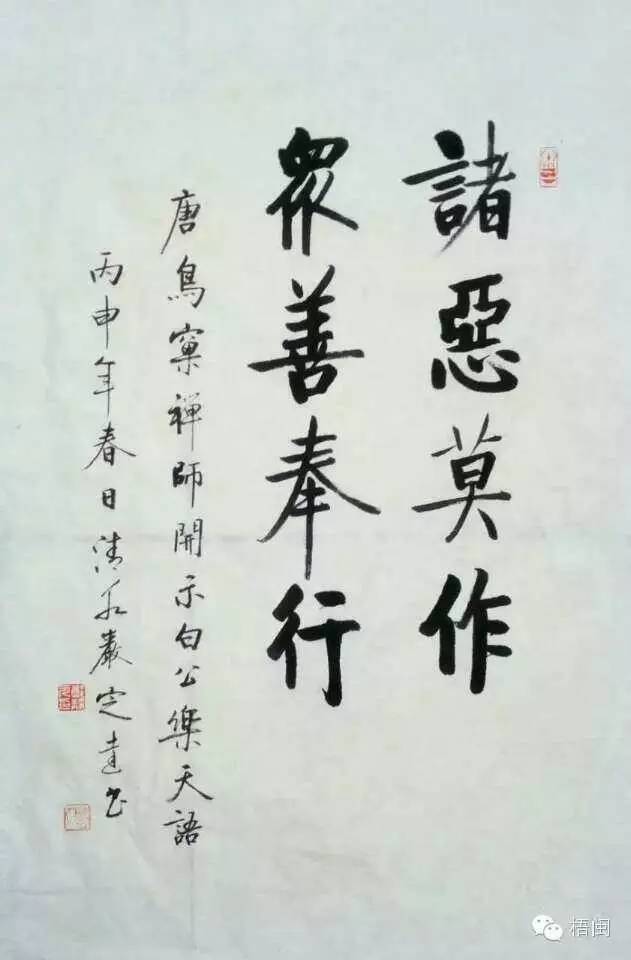 諸惡莫作
眾善奉行
唐鳥窠禪師開示白公樂天語
丙申年春日清水巖定達書
梧闽